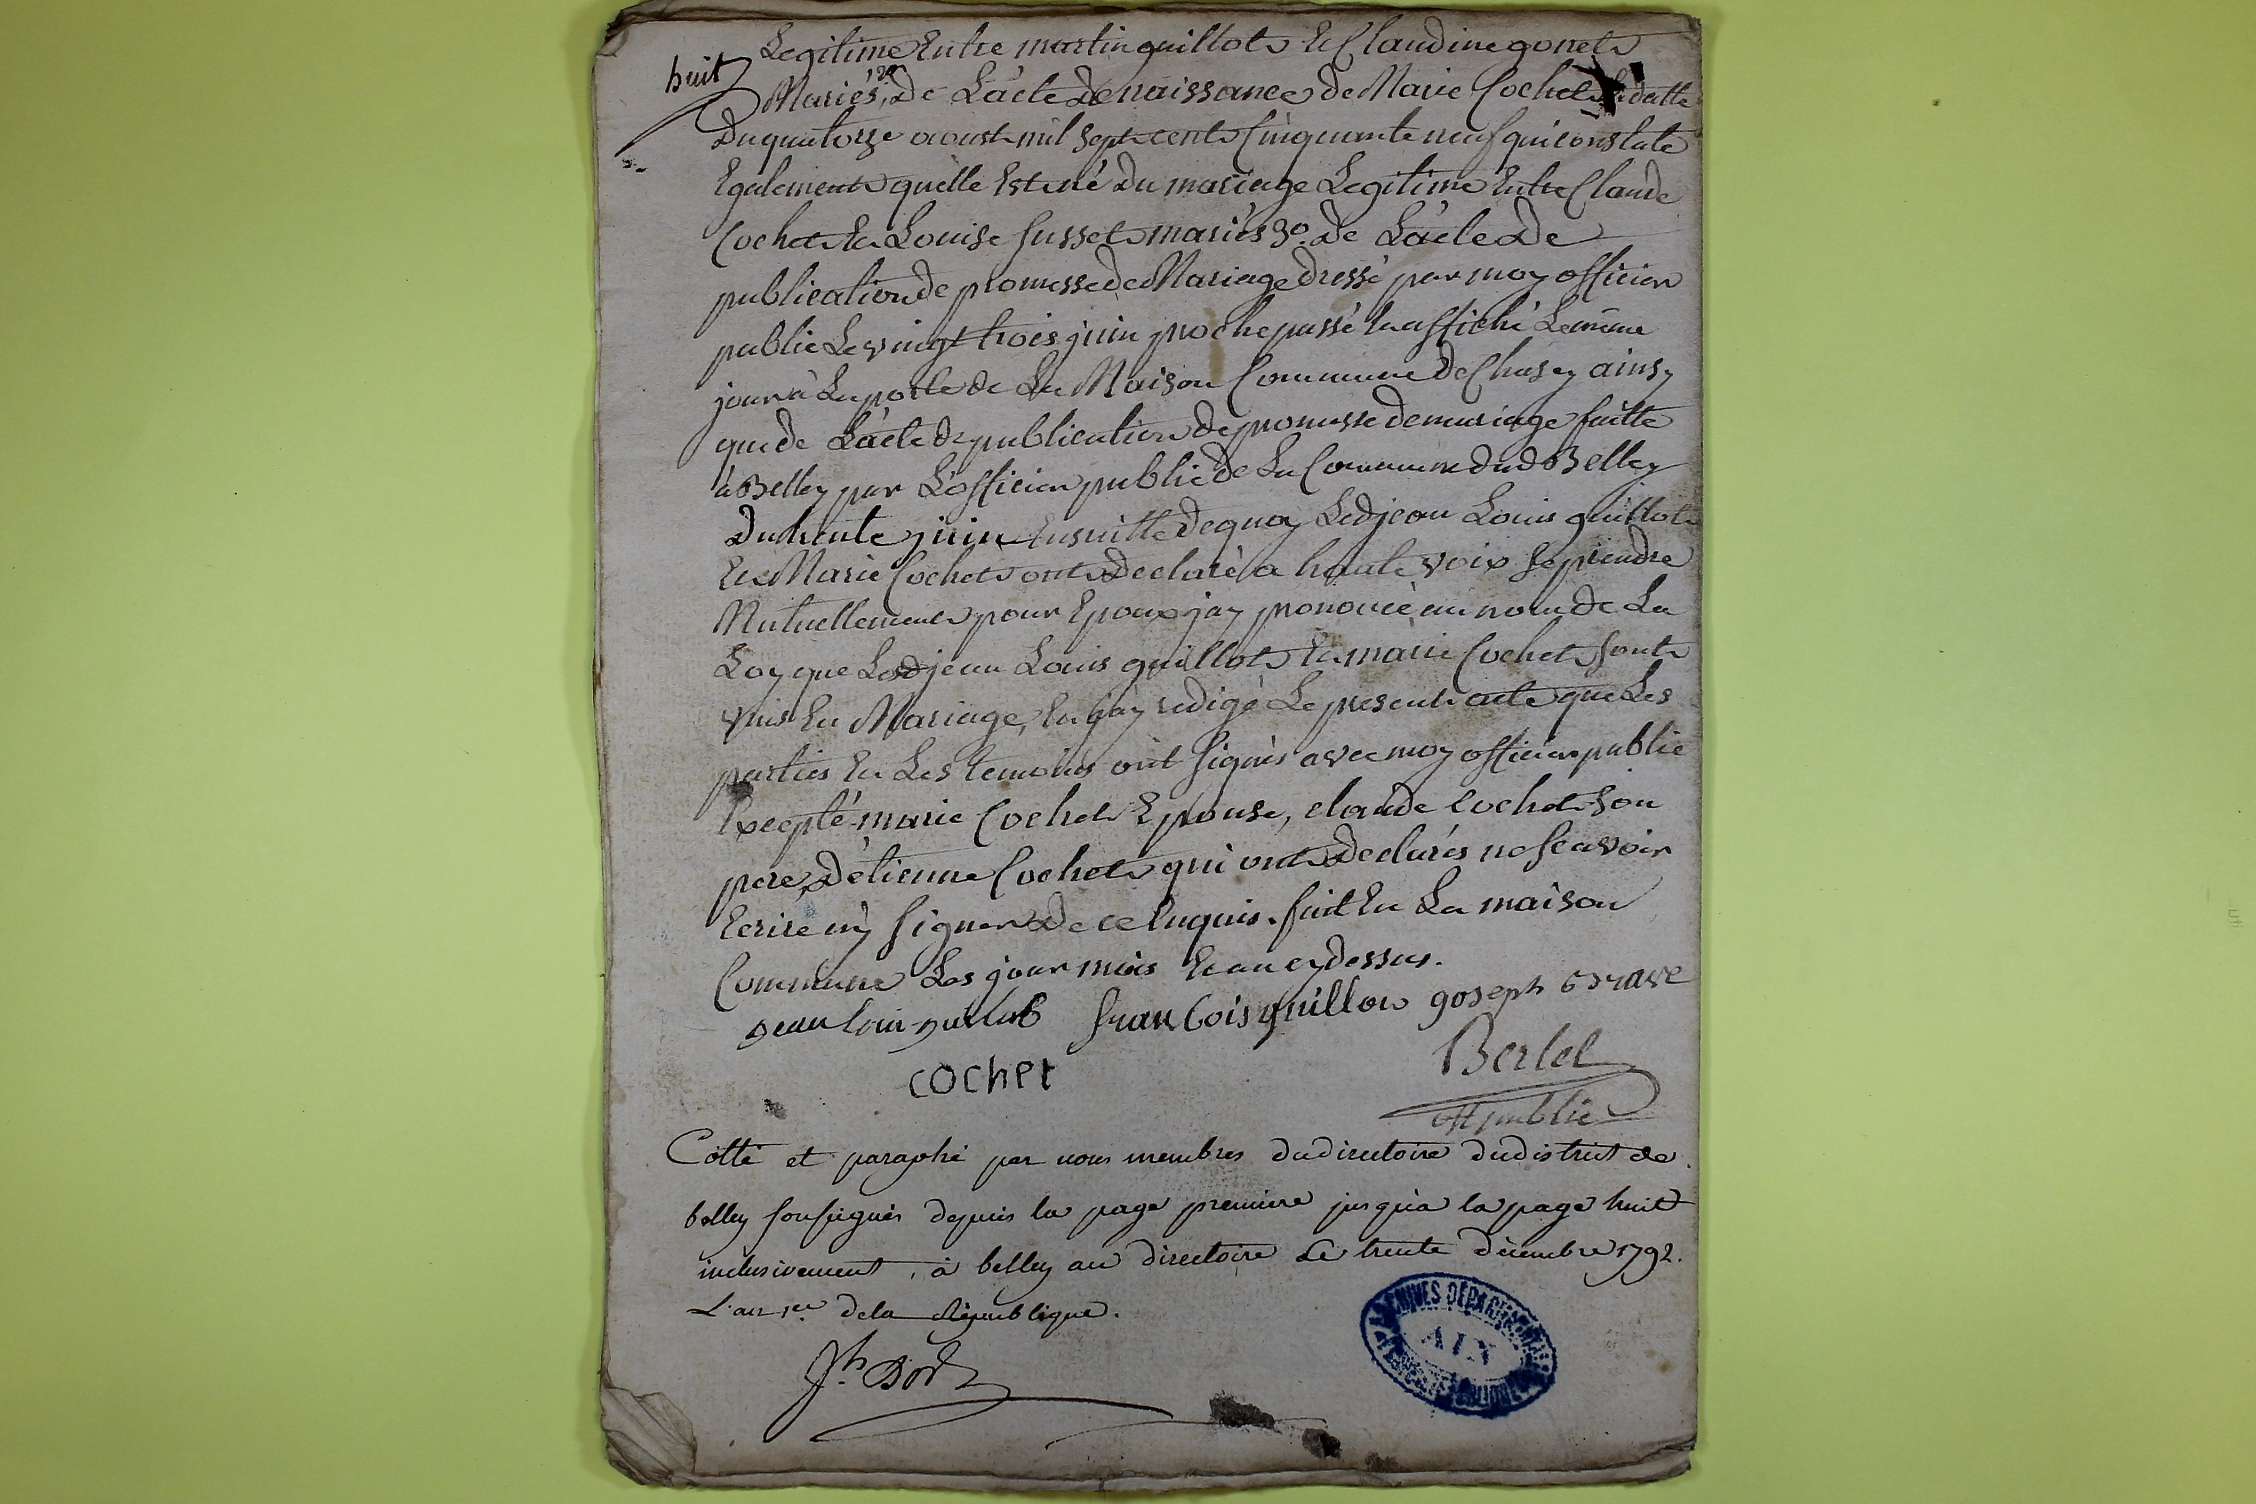 huit
Legitime Entre martin guillot Et Claudine gonet
Mariés, 2º. de Lácte de naissance de Marie Cochet En datte
Du quatorze aoust mil sept cent Cinquante neuf qui constate
Egalement quelle Est né du mariage Legitime Entre Claude
Cochet Et Louise Susset mariés 3º. de Lácte de
publication de promesse de Mariage dressé par moy officier
public Le vingt trois juin proche passé Et affiché Le même
jour à La porte de La Maison Commune de Chasey ainsy
que de Lácte de publication de promesse de mariage faitte
à Belley par Lofficier public de La Commune dud Belley
du trente juin Ensuitte de quoy Led jean Louis guillot
Et Marie Cochet ont declaré a haute voix se prendre
Mutuellement pour Epoux jay prononcé au nom de La
Loy que Lesd jean Louis guillot Et marie Cochet sont
unis En Mariage, Et jáy redigé Le present acte que Les
parties Et Les temoins ont signés avec moy officier public
Excepté marie Cochet Epouse, claude Cochet son
pere, d'étienne Cochet qui ont declarés ne scavoir
Ecrire ny signer de ce Enquis. fait En La maison
Commune Les jour mois Et an cy dessus.
jean loui guilot francois guillou joseph Grave
Bertet
COCHET
off public
Cotté et paraphé par nous membres du directoire du district de
belley soussignés depuis la page premiere jusqu'a la page huit
inclusivement, à belley au directoire Le trente décembre 1792.
L'an 1er. de la République.
Jh. Dor
ARCHIVES DÉPARTEMENTALES
AIN